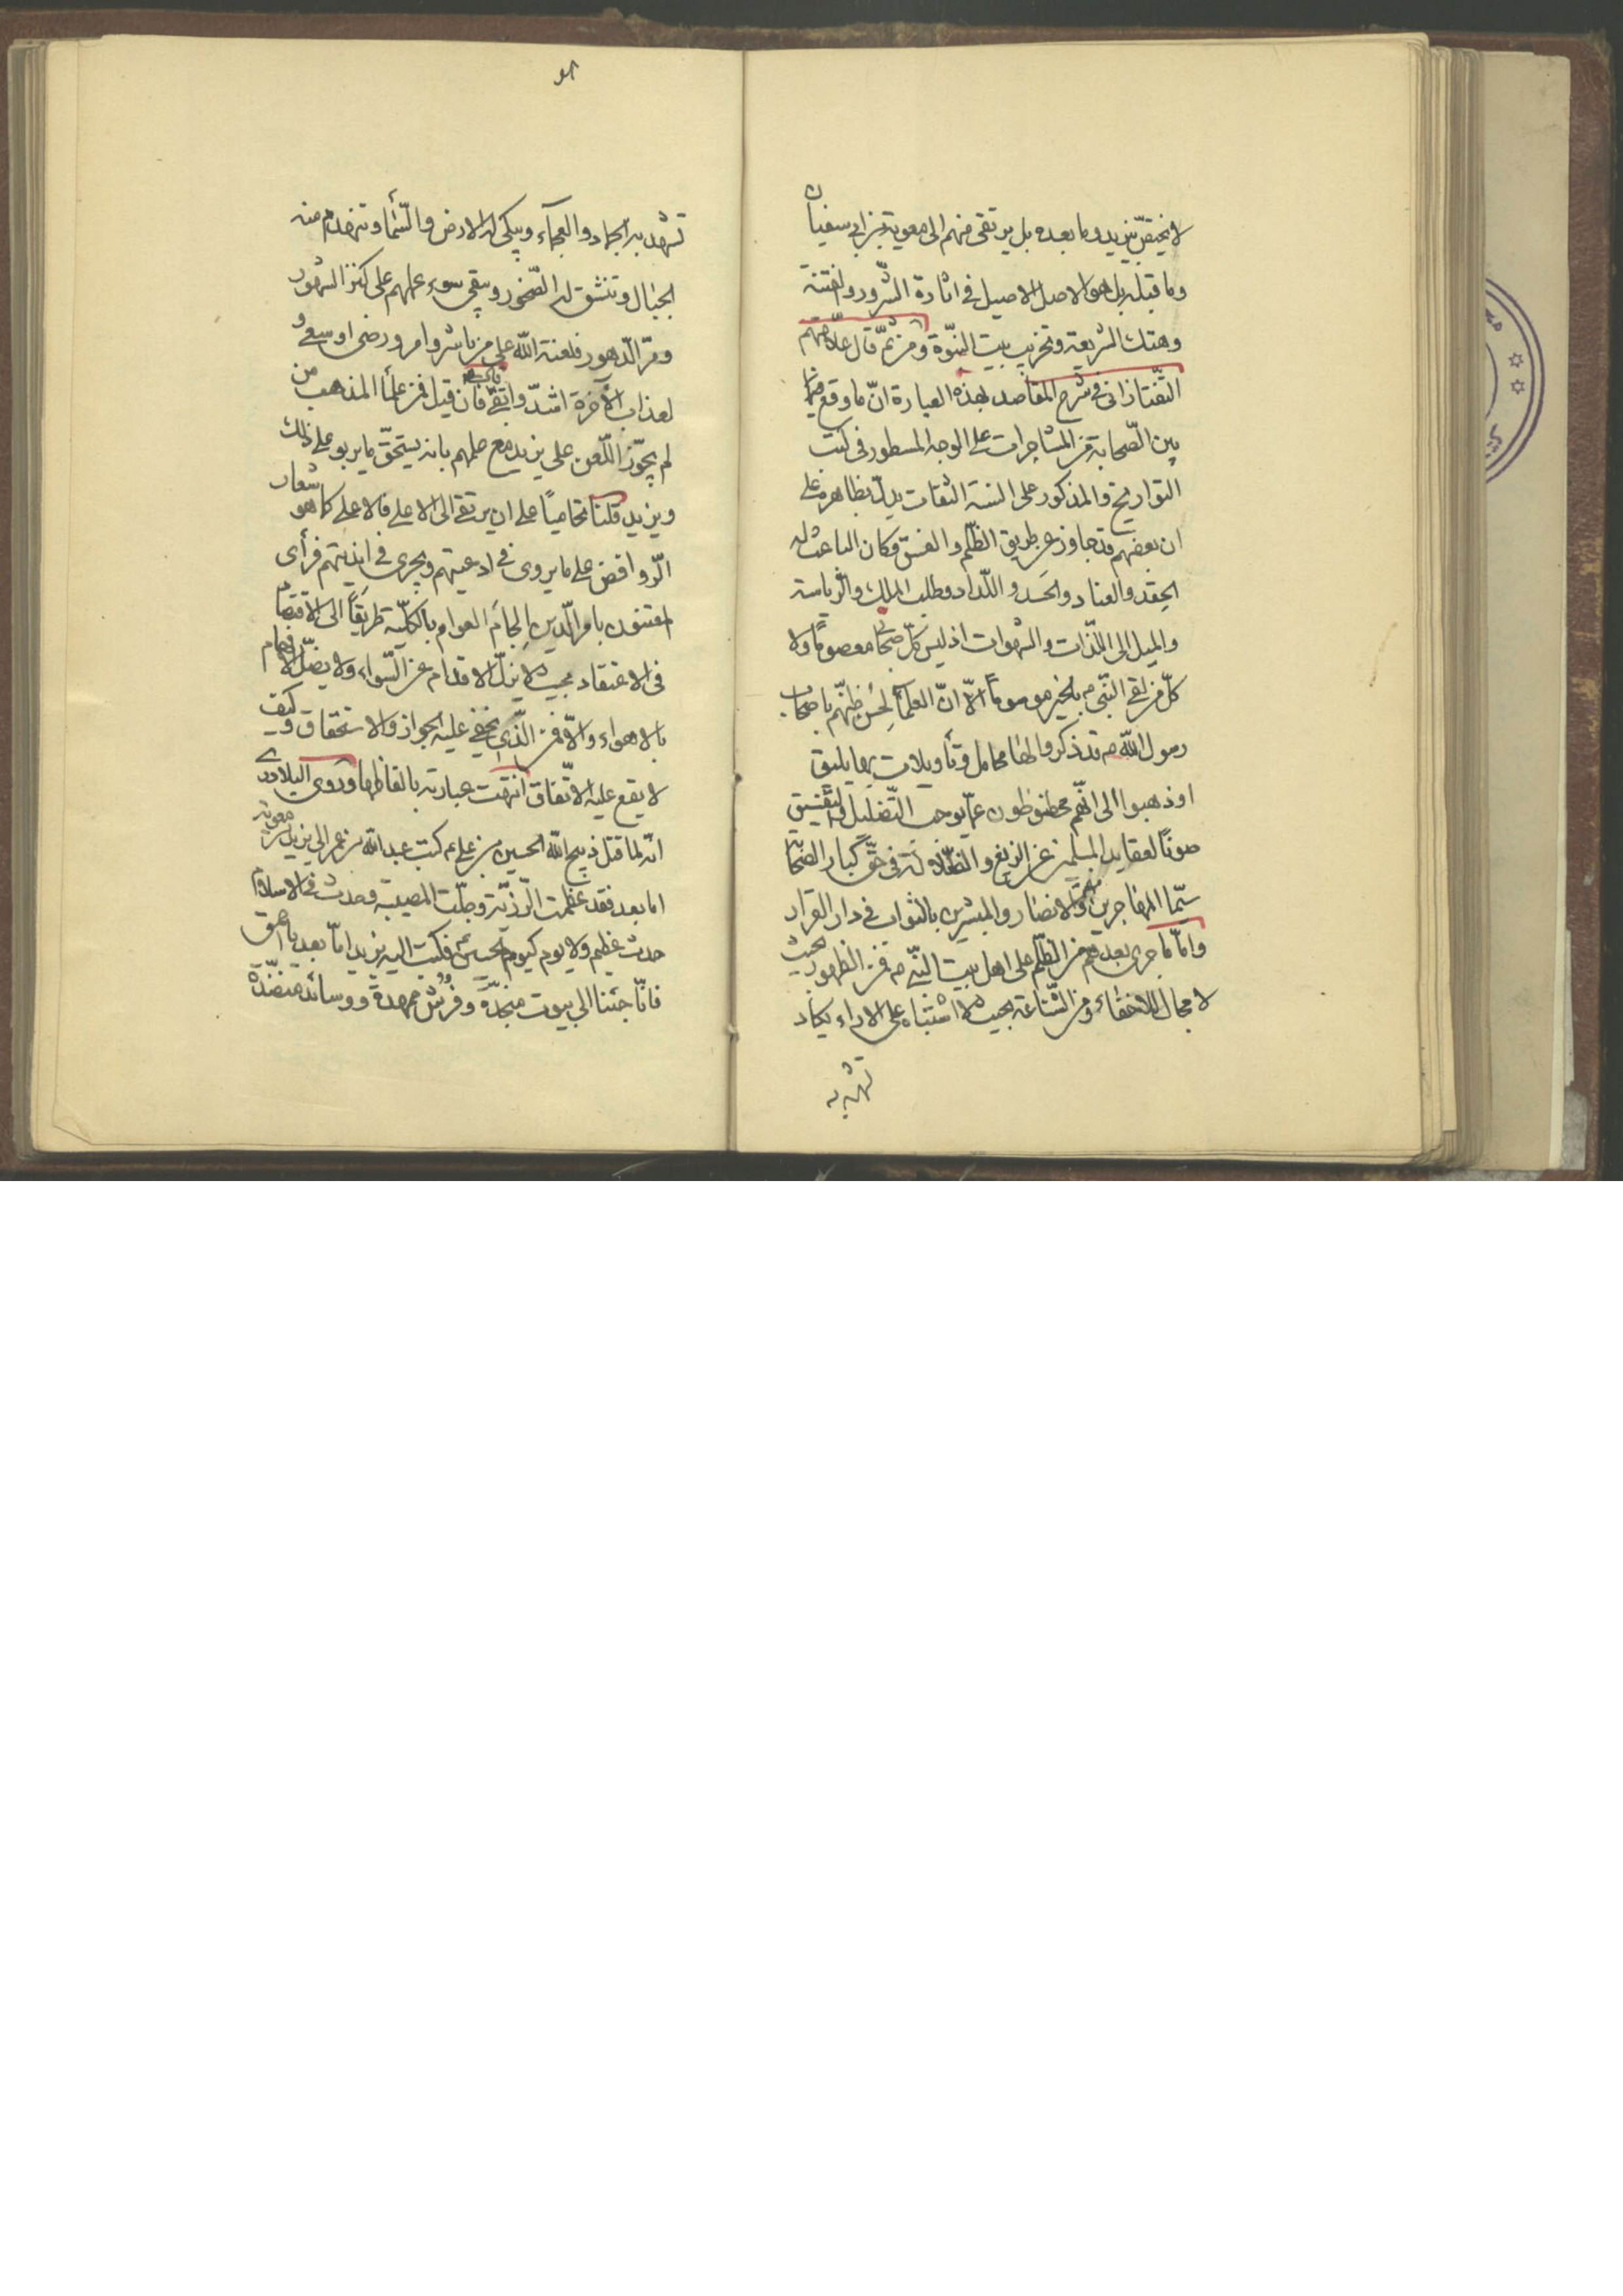 لا يختصّ بيزيد وما بعده بل يرتقى منهم الى معوية بن ابى سفيان
وما قبله بل هو الاصل الاصيل فى اثارة الشّرور والفتنة
وهتك الشريعة وتخريب بيت النبوّة ومن ثمّ قال علّامتهم
التّفتازانى فى شرح المقاصد بهذه العبارة انّ ما وقع فيما
بين الصّحابة من المشاجرات على الوجه المسطور فى كتب
التواريخ والمذكور على السنة الثقات يدلّ بظاهره على
ان بعضهم قد جاوز عن طريق الظّلم والفسق وكان الباعث له
الحقد والعناد والحسد واللّداد وطلب الملك والرّياسة
والميل الى اللّذات والشهوات اذ ليس كلّ صحابى معصومًا ولا
كلّ من لقى النّبى ص بالخير موسومًا الّا انّ العلماء لحُسن ظنّهم باصحاب
رسول اللّه ص قد ذكروا لها محامل وتأويلات بها يليق
او ذهبوا الى انّهم محفوظون عمّا يوجب التّضليل والتّفسيق
صونًا لعقايد المسلمين عن الزيغ والضّلالة فى حقّ كبار الصّحابة
سيّما المهاجرين منهم والانصار والمبشرين بالثواب فى دار القرار
وامّا ما جرى بعدهم من الظّلم على اهل بيت النّبى ص فمن الظهور بحيث
لا مجال للاخفاء ومن الشّناعة بحيث لا اشتباه على الاراء يكاد
تشهد به
تشهد به الجماد والعجمآء ويبكى له الارض والسّماء وتنهدم منه
الجبال وتنشق له الصّخور ويبقى سوء عملهم على كرّ الشهور
ومرّ الدّهور فلعنة اللّه على من باشر او امر او رضى او سعى و
لعذاب الآخرة اشدّ وابقى فان قيل فمن علماء المذهب من
لم يجوّز اللّعن على يزيد مع علمهم بانه يستحقّ ما يربو على ذلك
ويزيد قلنا تحاميًا على ان يرتقى الى الاعلى فالاعلى كما هو شعار
الرّوافض على ما يروى فى ادعيتهم ويجرى فى انديتهم فرأى
المعتنون بامر الّدين الجام العوام بالكلّية طريقًا الى الاقتصاد
فى الاعتقاد بحيث لا يزلّ الاقدام عن السّواء ولا يضلّ الافهام
بالاهواء والّا فمن الّذى يخفى عليه الجواز والاستحقاق وكيف
لا يقع عليه الاتّفاق انتهت عبارته بالفاظها وروى البلاذرى
انّه لما قتل ذبيح اللّه الحسين بن على ع كتب عبد اللّه بن عمر الى يزيد بن معوية
اما بعد فقد عظمت الرّزيّة وجلّت المصيبة وحدث فى الاسلام
حدث عظيم ولا يوم كيوم الحسين ع فكتب اليه يزيد امّا بعد يا احمق
فانّا جئنا الى بيوت منجدّة وفرُش ممهدة ووسائد منضّدة